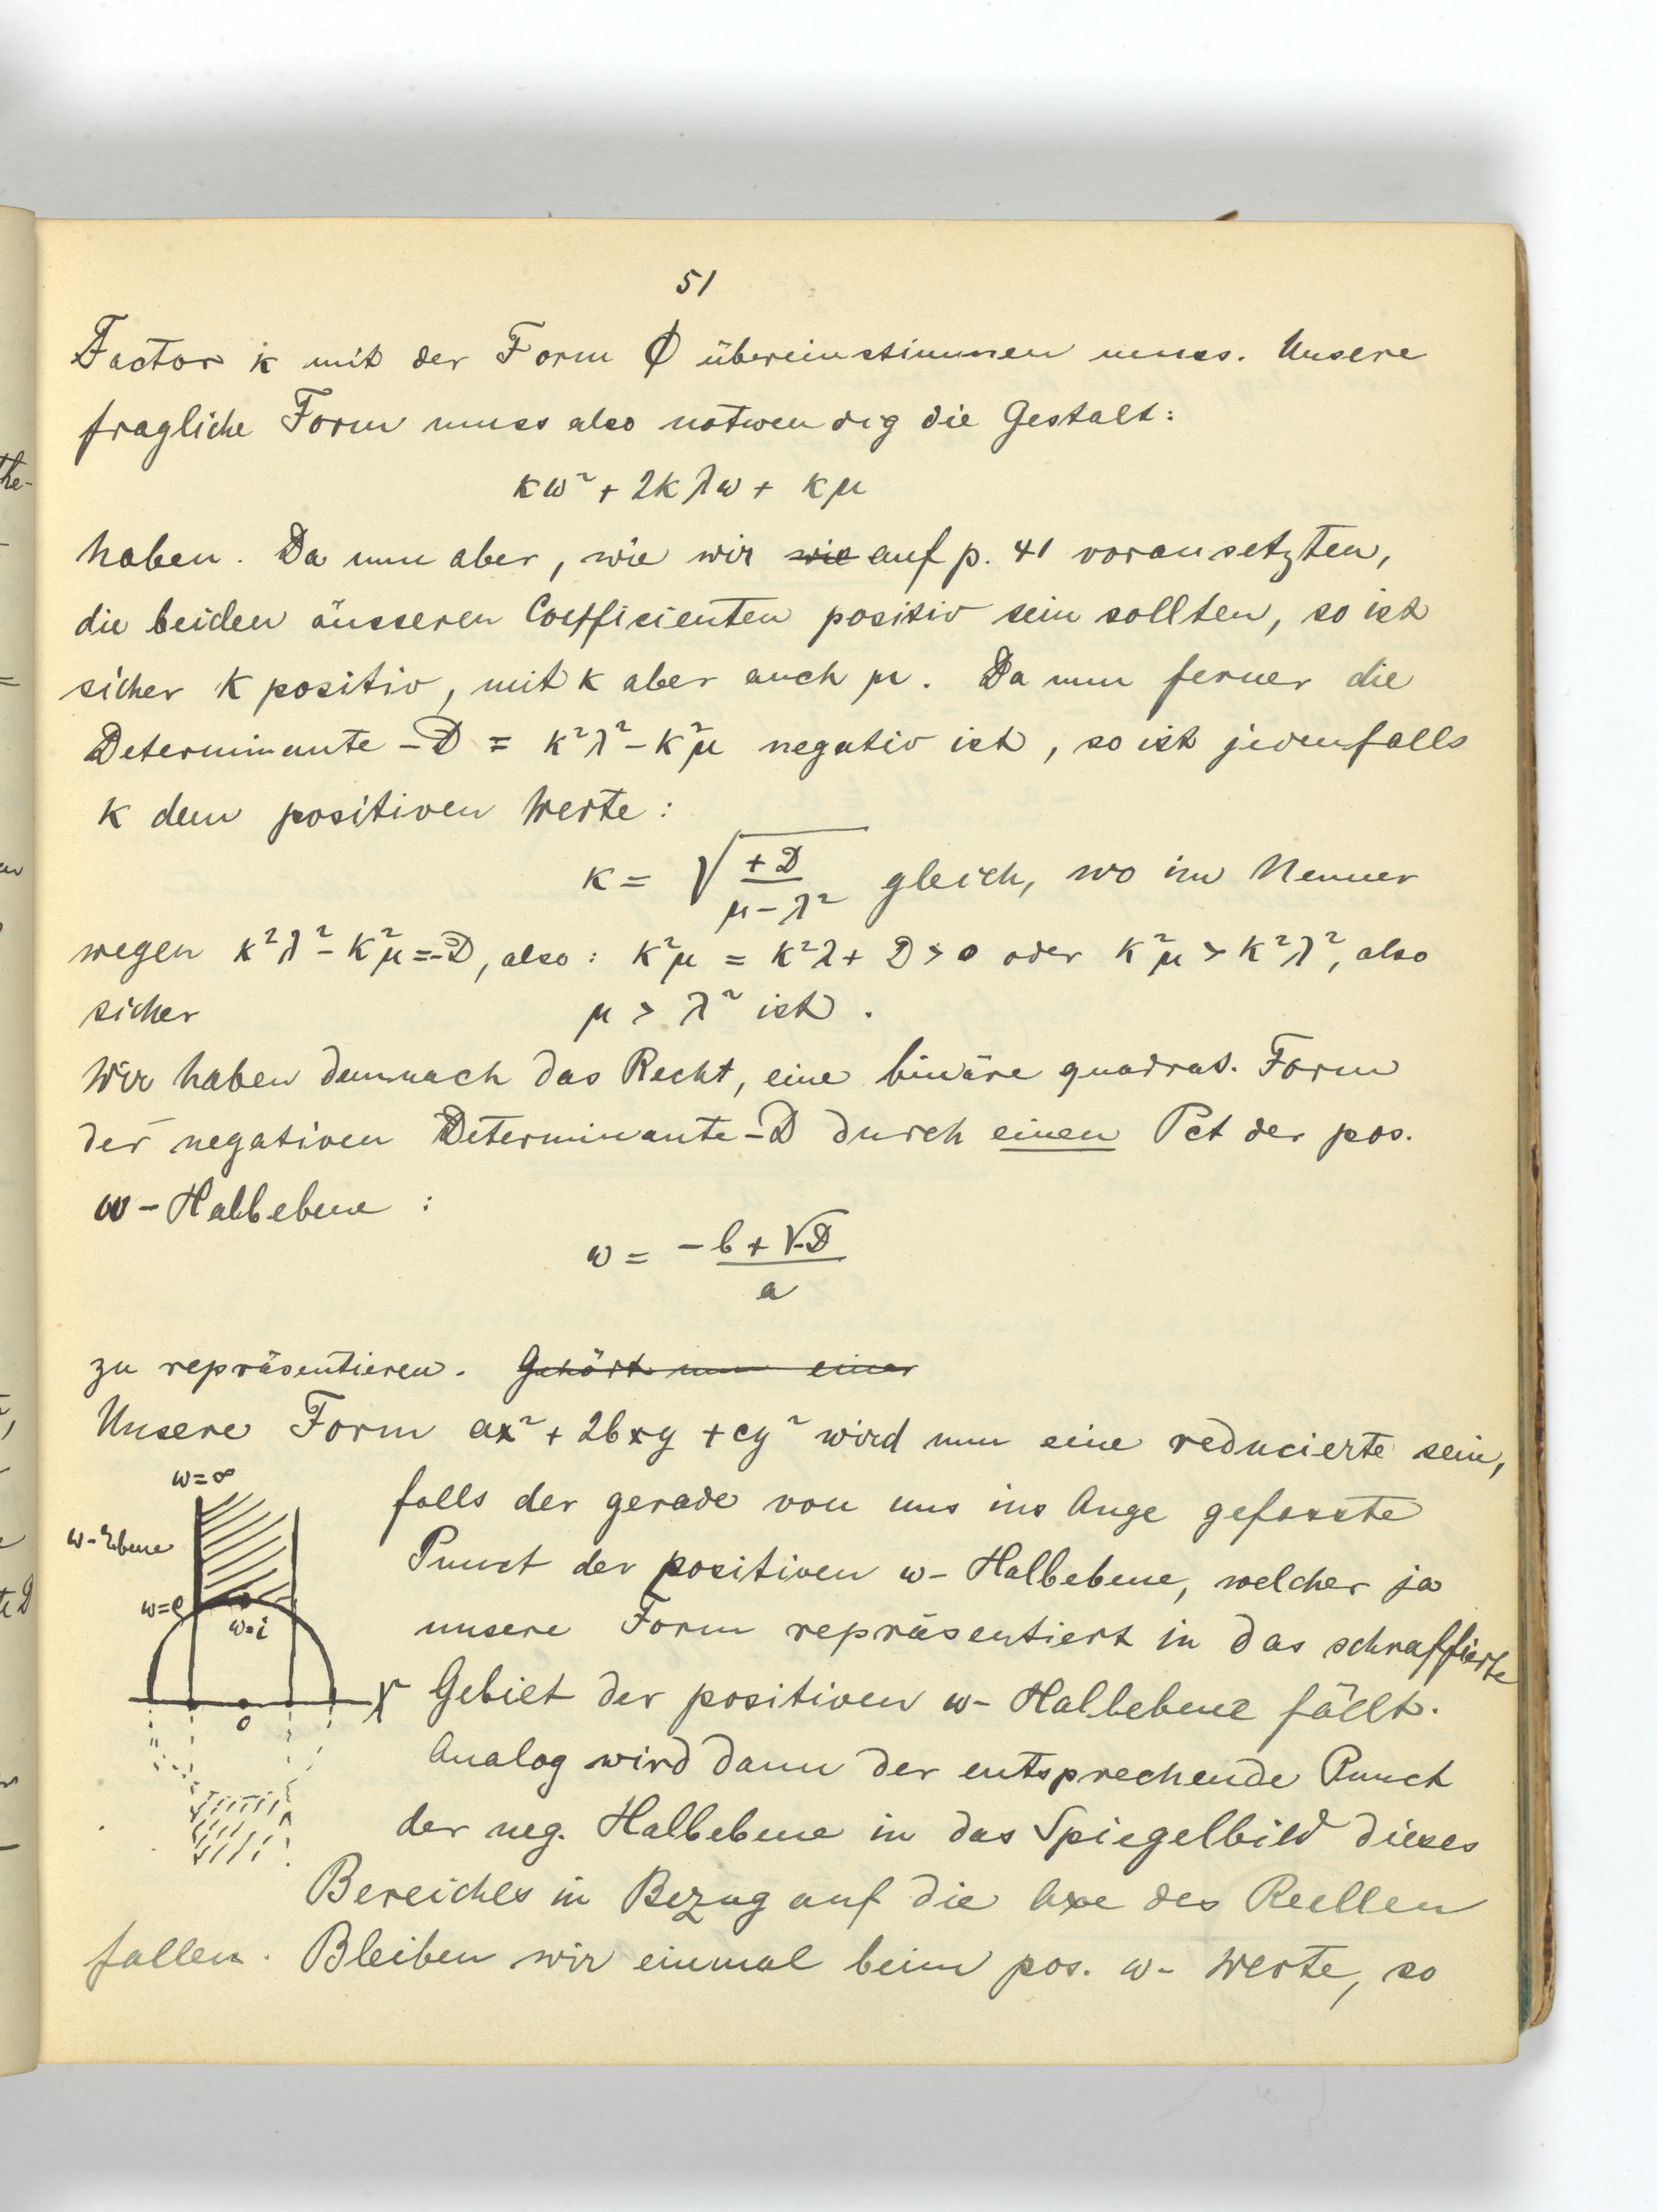 51
Factor k mit der Form Φ übereinstimmen muss. Unsere
fragliche Form muss also notwendig die Gestalt:
kω² + 2kλω + kμ
haben. Da nun aber, wie wir wie auf p. 41 voraussetzten,
die beiden äusseren Coefficienten positiv sein sollten, so ist
sicher k positiv, mit k aber auch μ. Da nun ferner die
Determinante -D = k²λ² - k²μ negativ ist, so ist jedenfalls
k dem positiven Werte:
k = √(+D / μ - λ²) gleich, wo im Nenner
wegen k²λ² - k²μ = -D, also: k²μ = k²λ + D > 0 oder k²μ > k²λ², also
sicher μ > λ² ist.
Wir haben demnach das Recht, eine binäre quadrat. Form
der negativen Determinante -D durch einen Pct der pos.
ω - Halbebene :
ω = -b + √-D / a
zu repräsentieren. Gehört nun einer
Unsere Form ax² + 2bxy + cy² wird nun eine reducierte sein,
ω = ∞
falls der gerade von uns ins Auge gefasste
ω - Ebene
Punct der positiven ω - Halbebene, welcher ja
ω = ϱ
ω = i
unsere Form repräsentiert in das schraffierte
0
Gebiet der positiven ω - Halbebene fällt.
Analog wird dann der entsprechende Punct
der neg. Halbebene in das Spiegelbild dieses
Bereiches in Bezug auf die Axe des Reellen
fallen. Bleiben wir einmal beim pos. ω - Werte, so